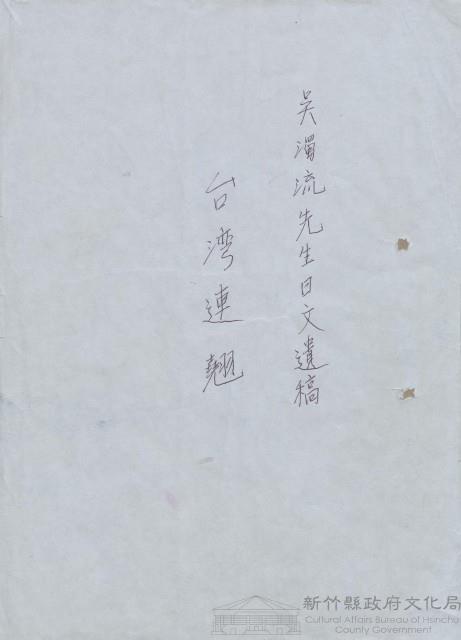 吳濁流先生日文遺稿
台湾連翹
新竹縣政府文化局
Cultural Affairs Bureau of Hsinchu
County Government